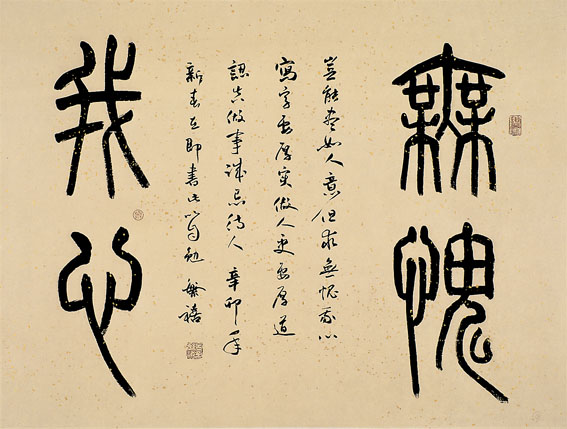 無愧
我心
豈能盡如人意但求無愧我心
寫字要厚實做人更要厚道
認真做事誠忠待人 辛卯年
新春在即書此以自勉 繁禧